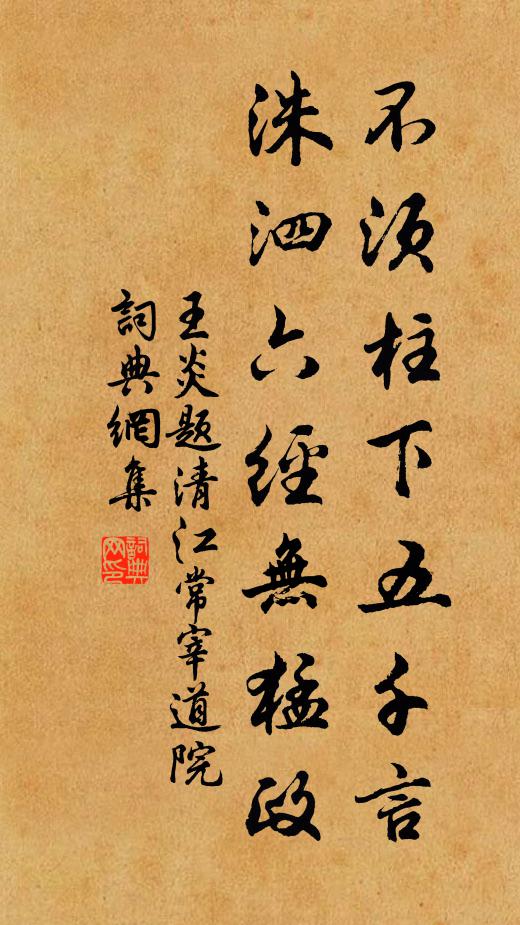 不须柱下五千言
洙泗六經無猛政
王炎题清江常宰道院
詞典網集
詞典
网印